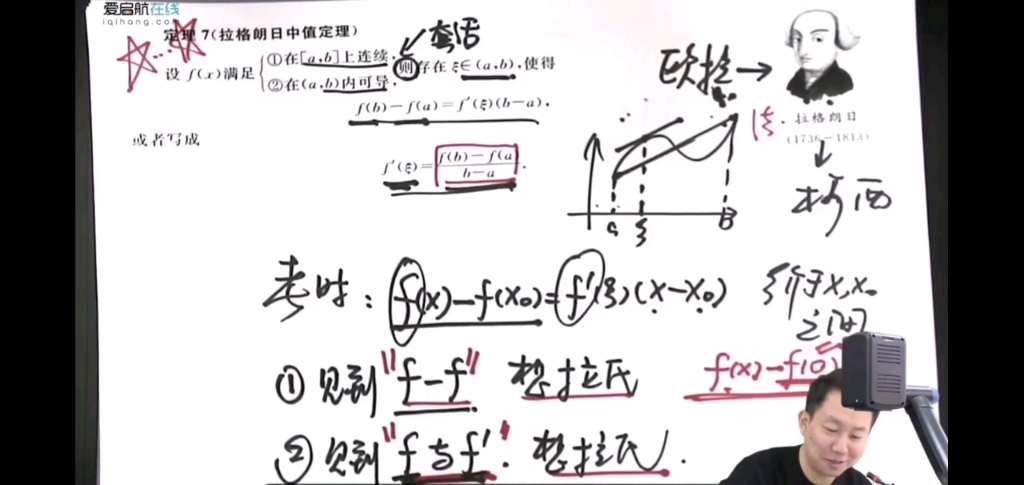 爱启航在线
iqihang.com
定理 7(拉格朗日中值定理)
套话
设 f(x)满足 ①在[a,b]上连续, 则存在 ξ∈(a,b),使得
②在(a,b)内可导,
f(b)-f(a)=f'(ξ)(b-a),
或者写成
f'(ξ)=f(b)-f(a / b-a.
欧拉→
拉格朗日
(1736-1813)
a ξ b
考时: f(x)-f(x₀)=f'(ξ)(x-x₀) ξ介于x,x₀
之间
① 见到"f-f" 想拉氏 f(x)-f(0)
② 见到"f与f'". 想拉氏.